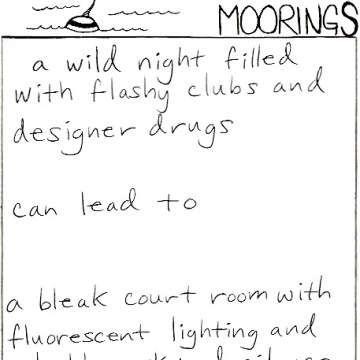 MOORINGS
a wild night filled
with flashy clubs and
designer drugs
can lead to
a bleak court room with
fluorescent lighting and